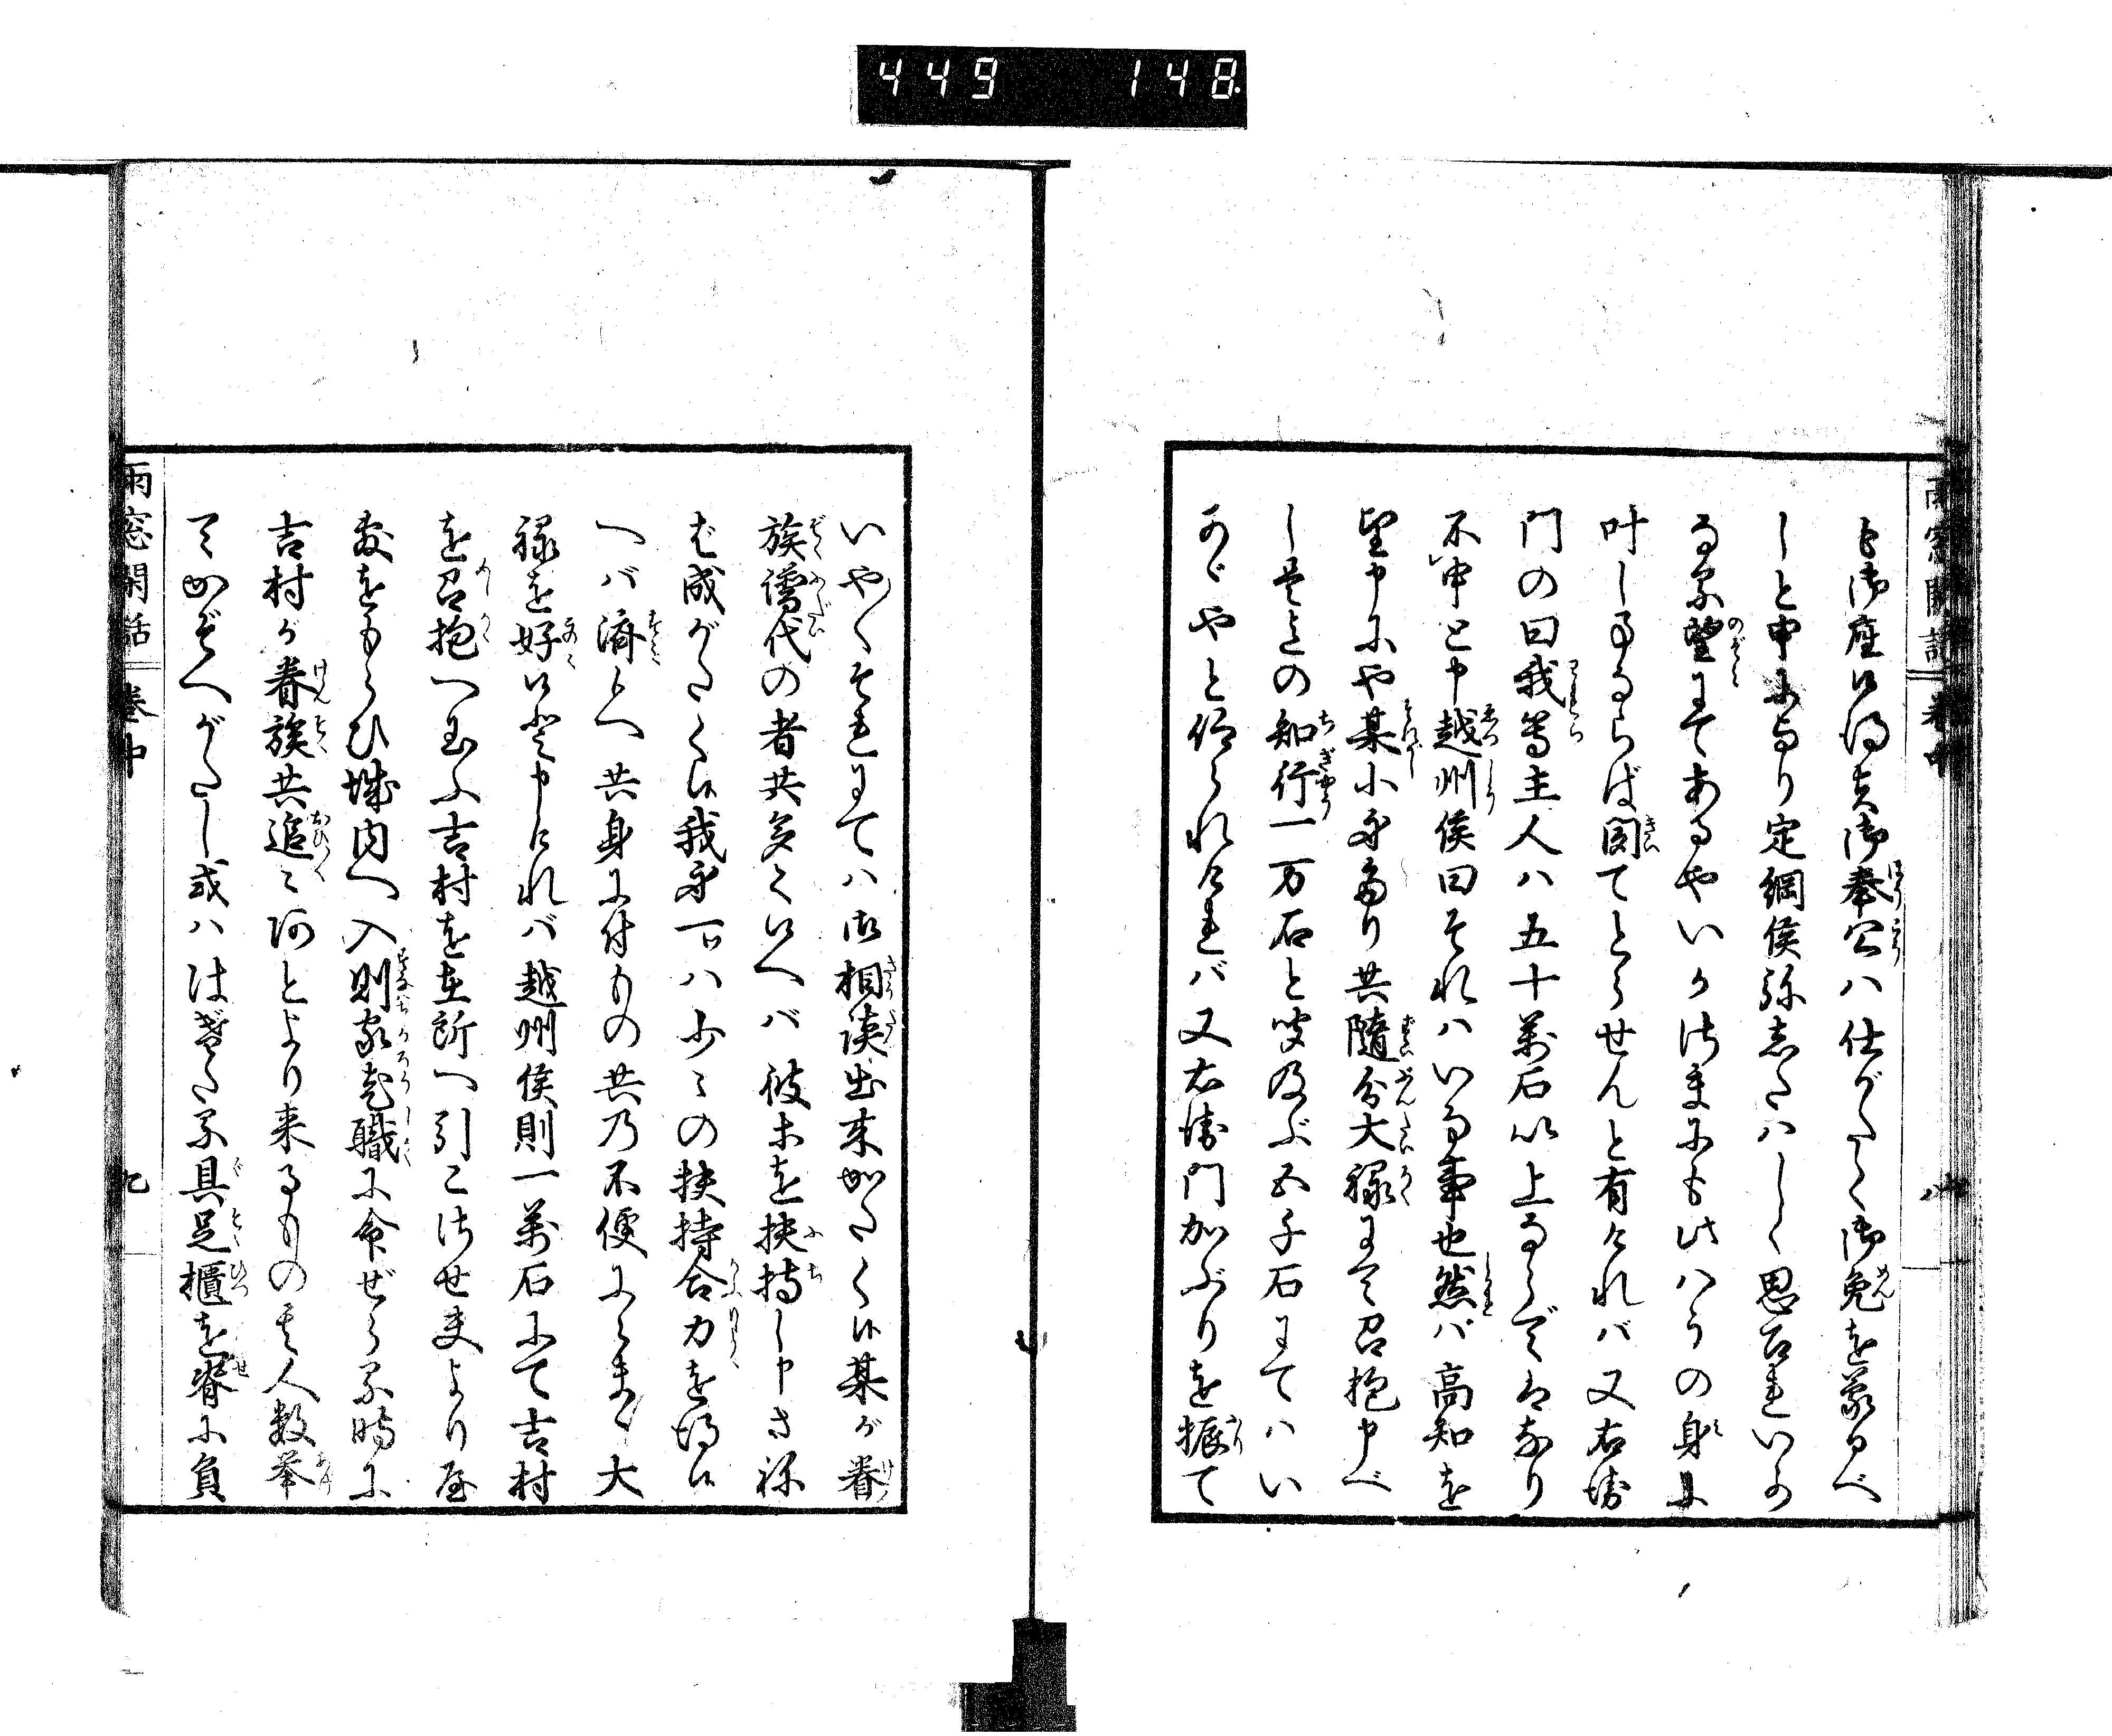 449 148
雨窓閑話 巻中 八
も御座候得共御奉公ハ仕がたく御免を蒙るべ
しと申により定綱侯弥したハしく思召れいか
なる望にてあるやいか様にも此はうの身に
叶し事ならば聞てとらせんと有ければ又右衛
門の曰我等主人ハ五十萬石以上ならでハなり
不申と申越州侯曰それハいな事也然バ高知を
望申にや某小身なり共随分大禄にて召抱申べ
し是迄の知行一万石と聞及ぶ五千石にてハい
かゞやと仰られけれバ又右衛門かぶりを振て
いや〱それにてハ御相談出来がたく候某が眷
族譜代の者共多く候へバ彼等を扶持し申さね
ば成がたく候我身一ハ少々の扶持合力を得候
へバ済候へ共身に付もの共乃不便にまゝ大
禄を好候と申けれバ越州侯則一萬石にて吉村
を召抱へ玉ふ吉村を在所へ引こさせ夫より屋
敷をもらひ城内へ入則家老職に命ぜらる時に
吉村が眷族共追々跡より来るもの其人数挙
てかぞへがたし或ハはぎたる具足櫃を脊に負
雨窓閑話 巻中 九